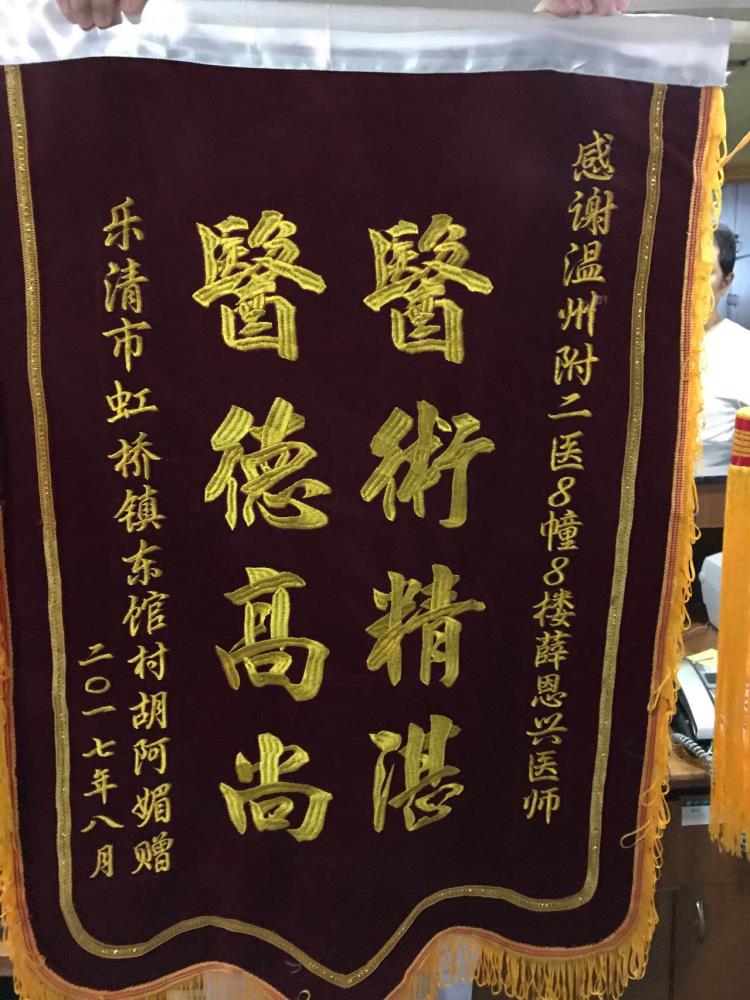 感谢温州附二医8幢8楼薛恩兴医师
醫術精湛
醫德高尚
乐清市虹桥镇东馆村胡阿媚赠
二〇一七年八月